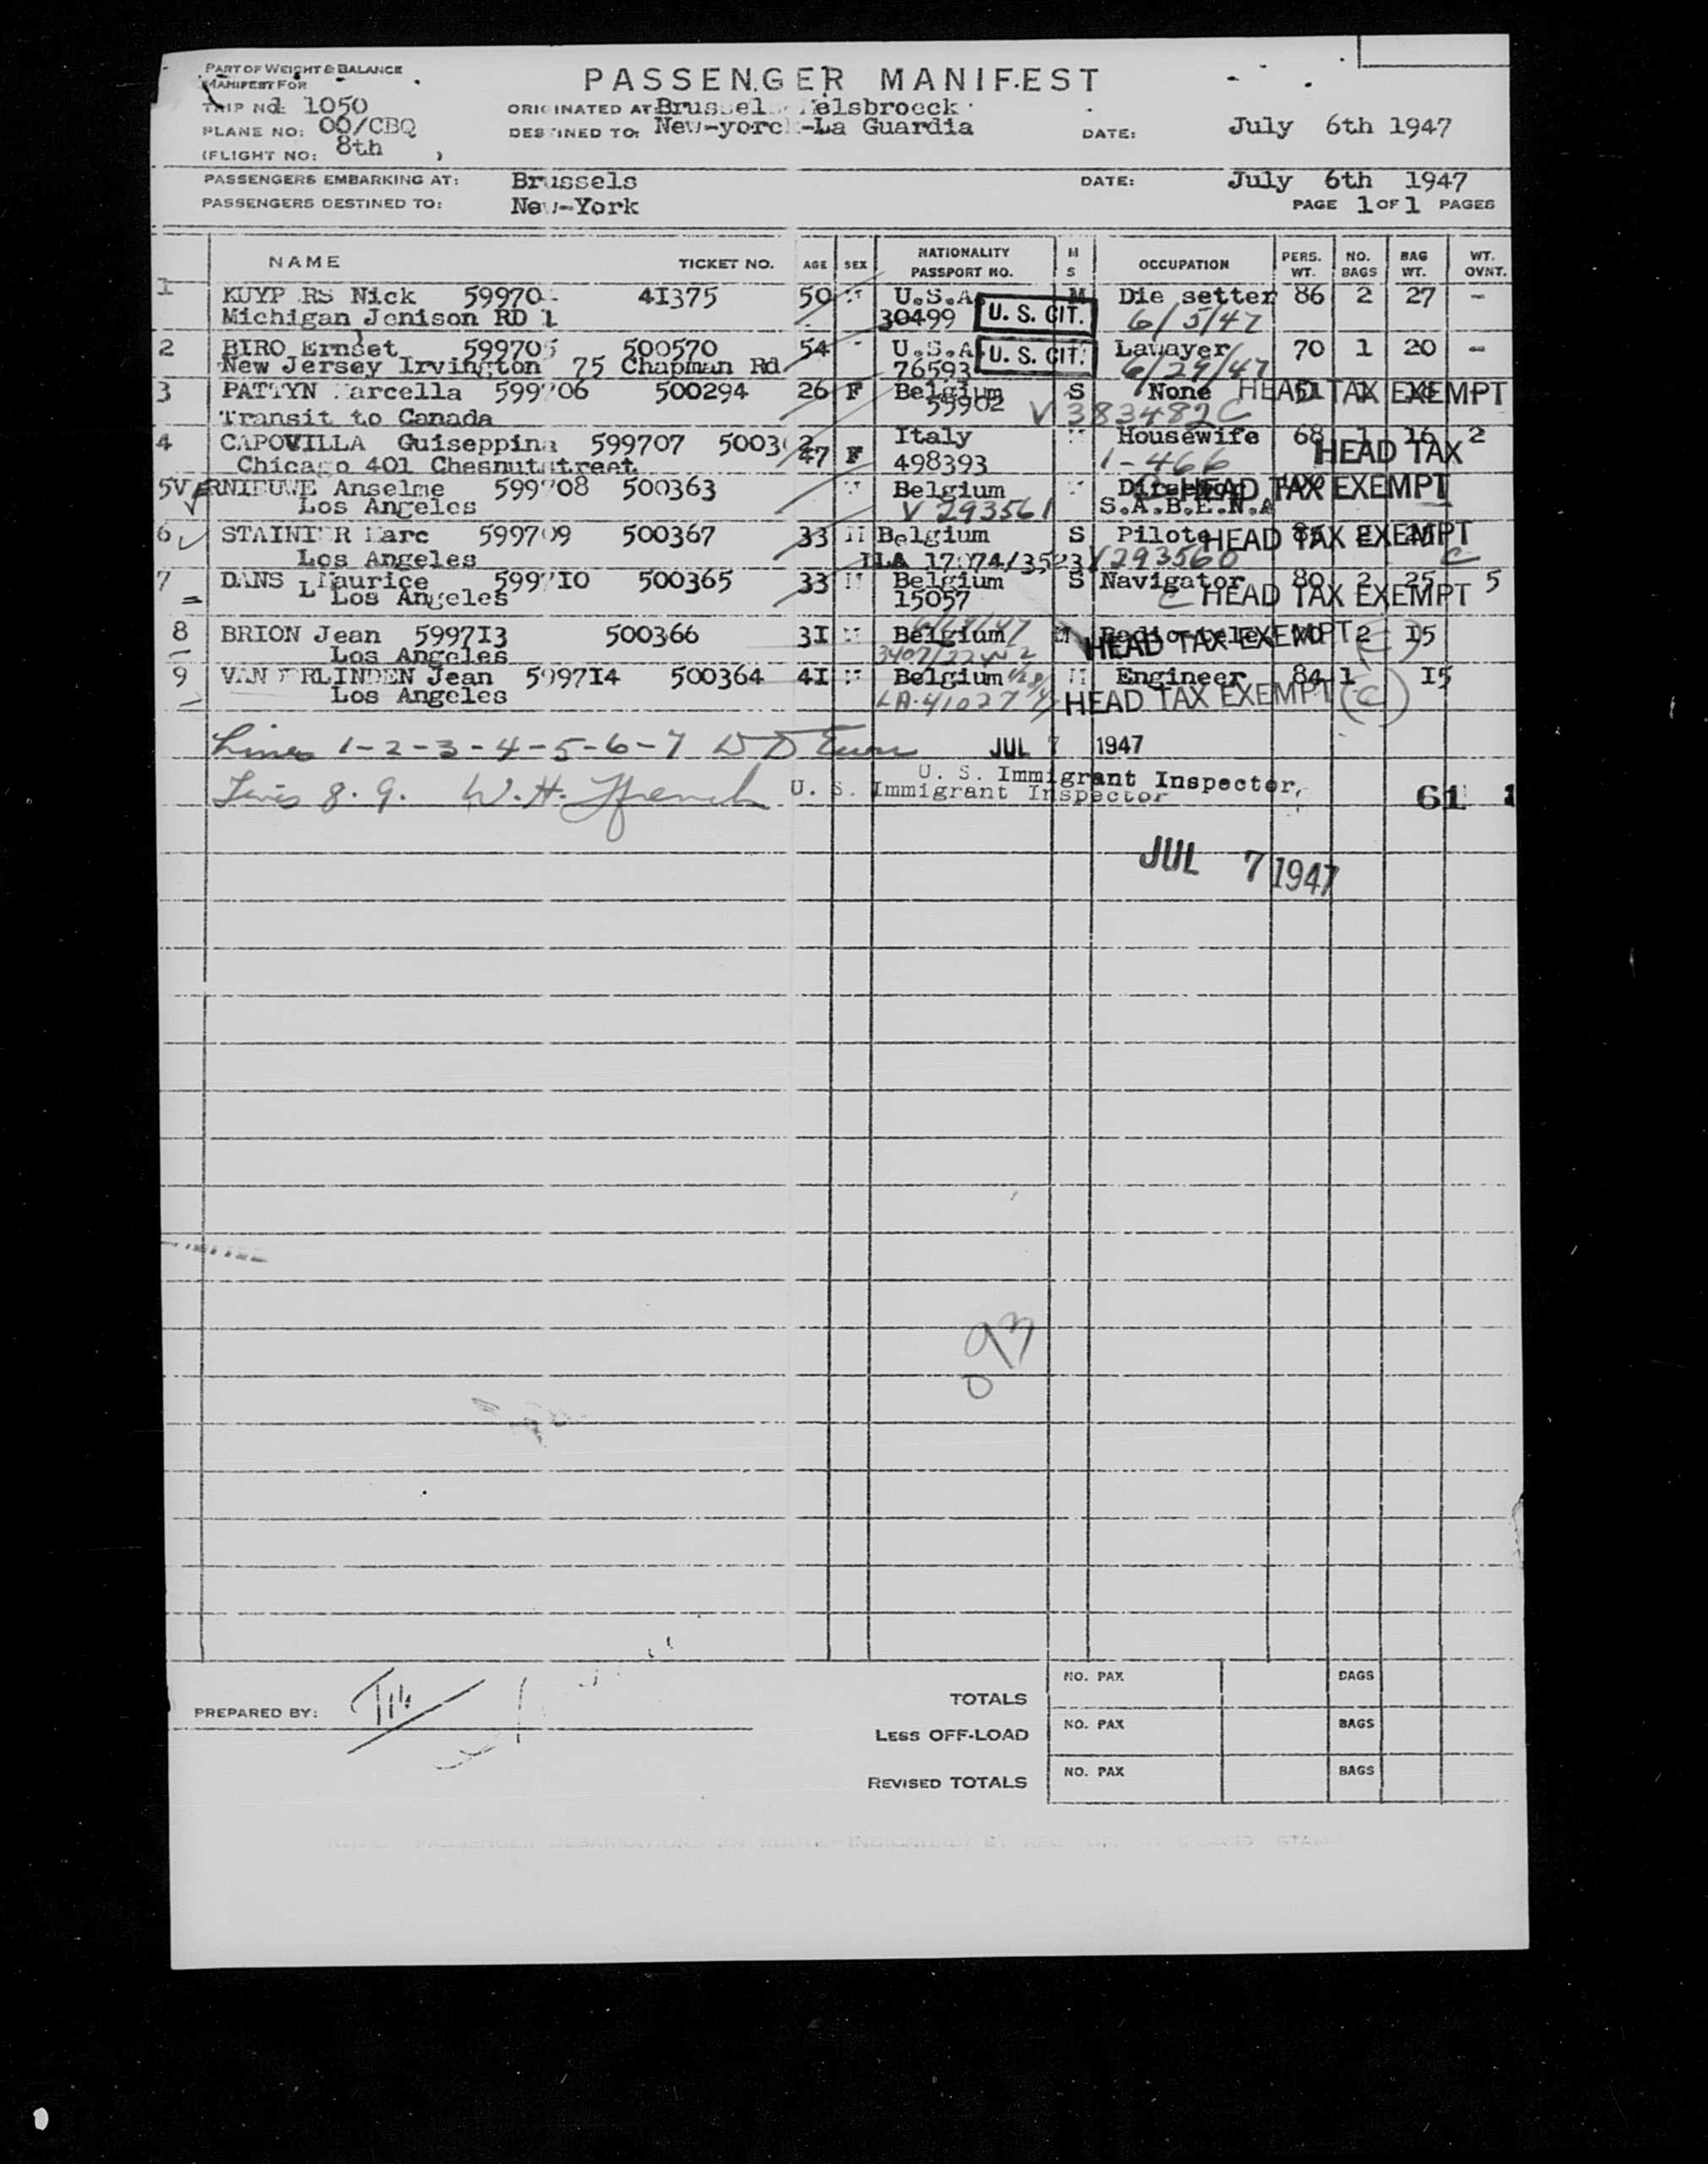 PART OF WEIGHT & BALANCE
MANIFEST FOR
PASSENGER MANIFEST
TRIP NO: 1050
ORIGINATED AT Brussel elsbroeck
PLANE NO: OO/CBQ
DESTINED TO: New-yorc -La Guardia
DATE: July 6th 1947
(FLIGHT NO: 8th )
PASSENGERS EMBARKING AT: Brussels
DATE: July 6th 1947
PASSENGERS DESTINED TO: New-York
PAGE 1 OF 1 PAGES
NAME TICKET NO. AGE SEX NATIONALITY PASSPORT NO. M S OCCUPATION PERS. WT. NO. BAGS BAG WT. WT. OVNT.
1 KUYP RS Nick 59970 41375 50 U.S.A M Die setter 86 2 27 -
Michigan Jenison RD 1 30499 U. S. CIT. 6/5/47
2 BIRO Ernset 599705 500570 54 U.S.A U. S. CIT. Lawayer 70 1 20 -
New Jersey Irvington 75 Chapman Rd 76593 6/29/47
3 PATTYN arcella 599706 500294 26 F Belgium S None HEAD TAX EXEMPT
Transit to Canada 55902 V 383482C
4 CAPOVILLA Guiseppina 599707 5003 2 47 F Italy Housewife 68 1 16 2
Chicago 401 Chesnutstreet 498393 1-466 HEAD TAX
5 VERNIEUWE Anselme 599708 500363 Belgium Director HEAD TAX EXEMPT
Los Angeles V 293561 S.A.B.E.N.A
6 STAINI R Marc 599709 500367 33 M Belgium S Pilote HEAD TAX EXEMPT
Los Angeles V 293560 C
7 DANS L Maurice 599710 500365 33 Belgium S Navigator 80 2 25 5
Los Angeles 15057 C HEAD TAX EXEMPT
8 BRION Jean 599713 500366 31 Belgium M 2 15
Los Angeles HEAD TAX EXEMPT C
9 VAN ERLINDEN Jean 599714 500364 41 Belgium Engineer 84 1 15
Los Angeles LA-41027 HEAD TAX EXEMPT C
Lines 1-2-3-4-5-6-7 JUL 7 1947
U. S. Immigrant Inspector
Lines 8. 9. W. H. U. S. Immigrant Inspector 61 1
JUL 7 1947
93
0
PREPARED BY:
TOTALS NO. PAX BAGS
LESS OFF-LOAD NO. PAX BAGS
REVISED TOTALS NO. PAX BAGS